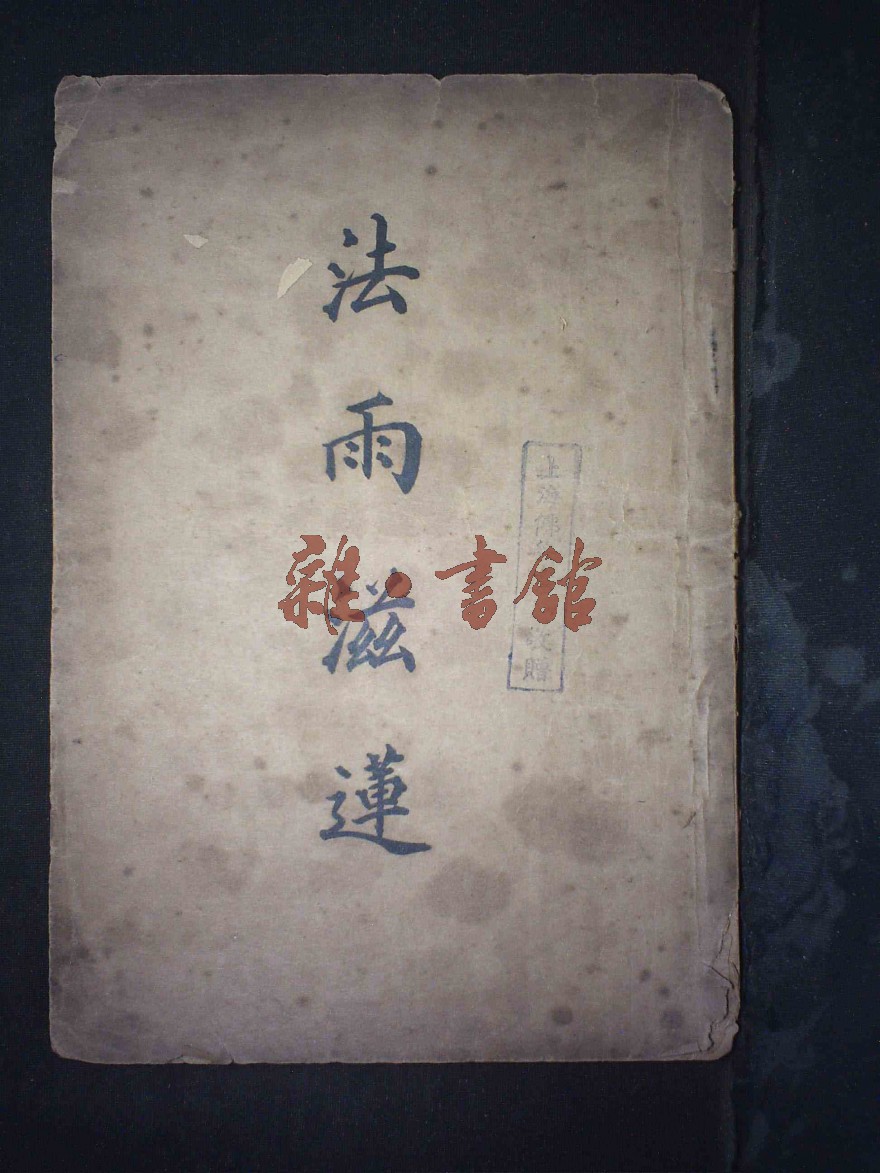 法雨滋蓮
上海佛
敬贈
雜·書館